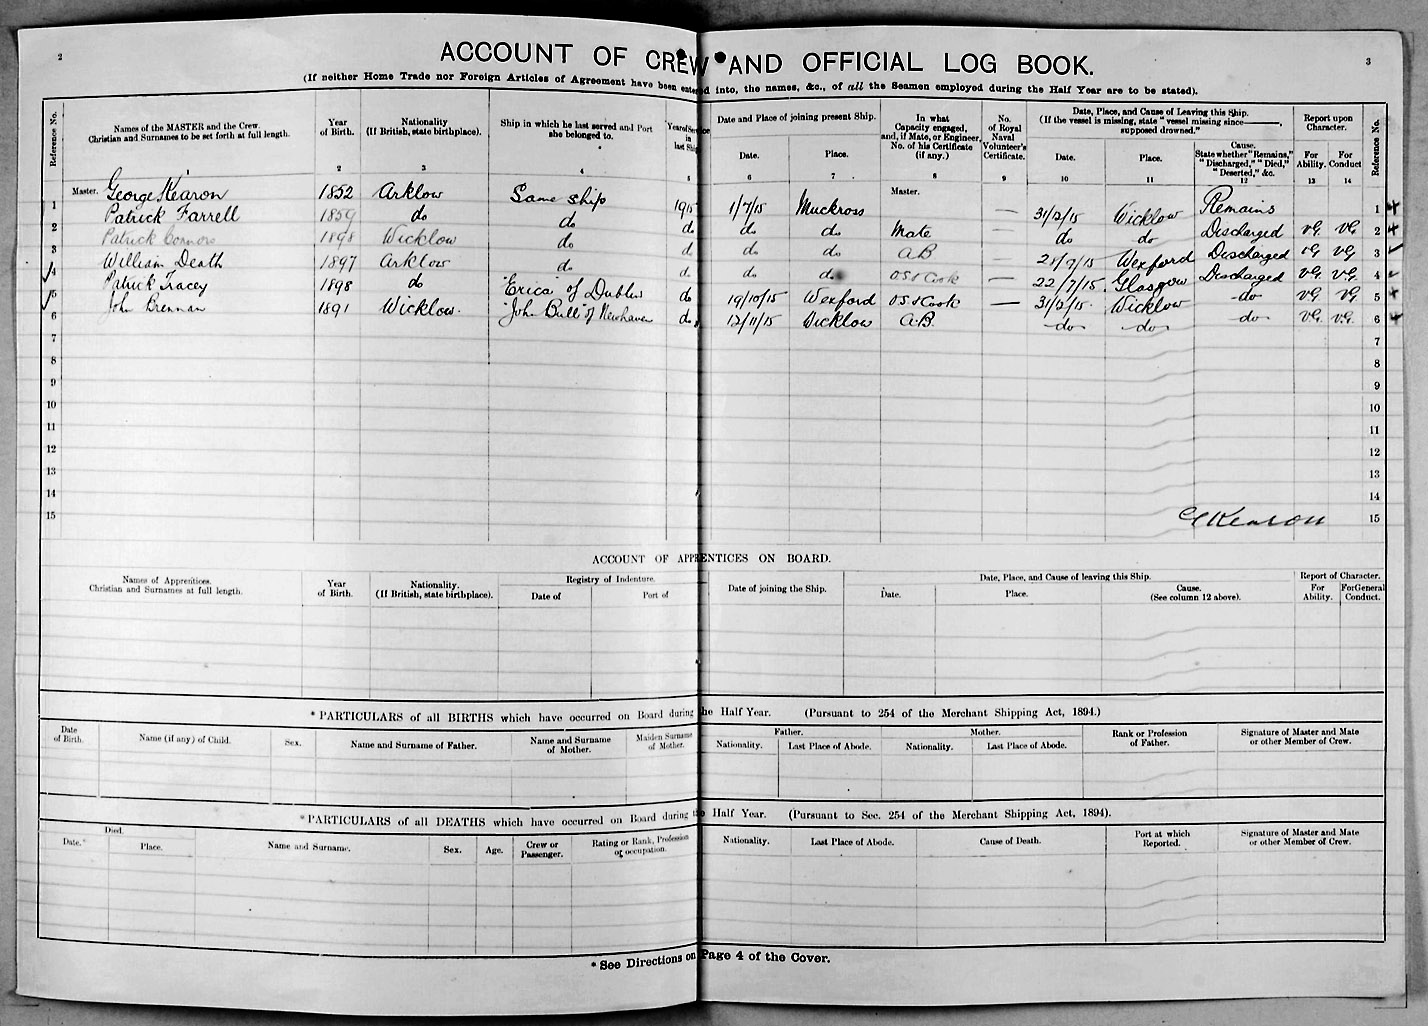 2
3
ACCOUNT OF CREW AND OFFICIAL LOG BOOK.
(If neither Home Trade nor Foreign Articles of Agreement have been entered into, the names, &c., of all the Seamen employed during the Half Year are to be stated).
Reference No. Names of the MASTER and the Crew. Christian and Surnames to be set forth at full length. Year of Birth. Nationality (If British, state birthplace). Ship in which he last served and Port she belonged to. Year of Service in last Ship Date and Place of joining present Ship. Date. Place. In what Capacity engaged, and, if Mate, or Engineer, No. of his Certificate (if any.) No. of Royal Naval Volunteer's Certificate. Date, Place, and Cause of Leaving this Ship. (If the vessel is missing, state "vessel missing since ———, supposed drowned." Date. Place. Cause. State whether "Remains," "Discharged," "Died," "Deserted," &c. Report upon Character. For Ability. For Conduct Reference No.
1 2 3 4 5 6 7 8 9 10 11 12 13 14
1 Master. George Kearon 1852 Arklow Same ship 1915 1/7/15 Muckross Master. — 31/12/15 Wicklow Remains 1
2 Patrick Farrell 1859 do do do do do Mate — do do Discharged VG VG 2
3 Patrick Connors 1898 Wicklow do do do do AB — 28/7/15 Wexford Discharged VG VG 3
4 William Death 1897 Arklow do do do do OS & Cook — 22/7/15 Glasgow Discharged VG VG 4
5 Patrick Tracey 1898 do "Erica of Dublin do 19/10/15 Wexford OS & Cook — 31/12/15 Wicklow do VG VG 5
6 John Brennan 1891 Wicklow. "John Bull" of Newhaven do 12/11/15 Wicklow A.B. do do do VG V.G. 6
7 7
8 8
9 9
10 10
11 11
12 12
13 13
14 14
15 G Kearon 15
ACCOUNT OF APPRENTICES ON BOARD.
Names of Apprentices. Christian and Surnames at full length. Year of Birth. Nationality. (If British, state birthplace). Registry of Indenture. Date of Port of Date of joining the Ship. Date, Place, and Cause of leaving this Ship. Date. Place. Cause. (See column 12 above). Report of Character. For Ability. For General Conduct.
*PARTICULARS of all BIRTHS which have occurred on Board during the Half Year. (Pursuant to 254 of the Merchant Shipping Act, 1894.)
Date of Birth. Name (if any) of Child. Sex. Name and Surname of Father. Name and Surname of Mother. Maiden Surname of Mother. Father. Nationality. Last Place of Abode. Mother. Nationality. Last Place of Abode. Rank or Profession of Father. Signature of Master and Mate or other Member of Crew.
*PARTICULARS of all DEATHS which have occurred on Board during the Half Year. (Pursuant to Sec. 254 of the Merchant Shipping Act, 1894).
Died. Date.* Place. Name and Surname. Sex. Age. Crew or Passenger. Rating or Rank, Profession or occupation. Nationality. Last Place of Abode. Cause of Death. Port at which Reported. Signature of Master and Mate or other Member of Crew.
* See Directions on Page 4 of the Cover.